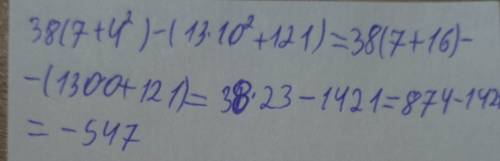 38(7+4²)-(13·10²+121)=38(7+16)-
-(1300+121)=38·23-1421=874-142
=-547